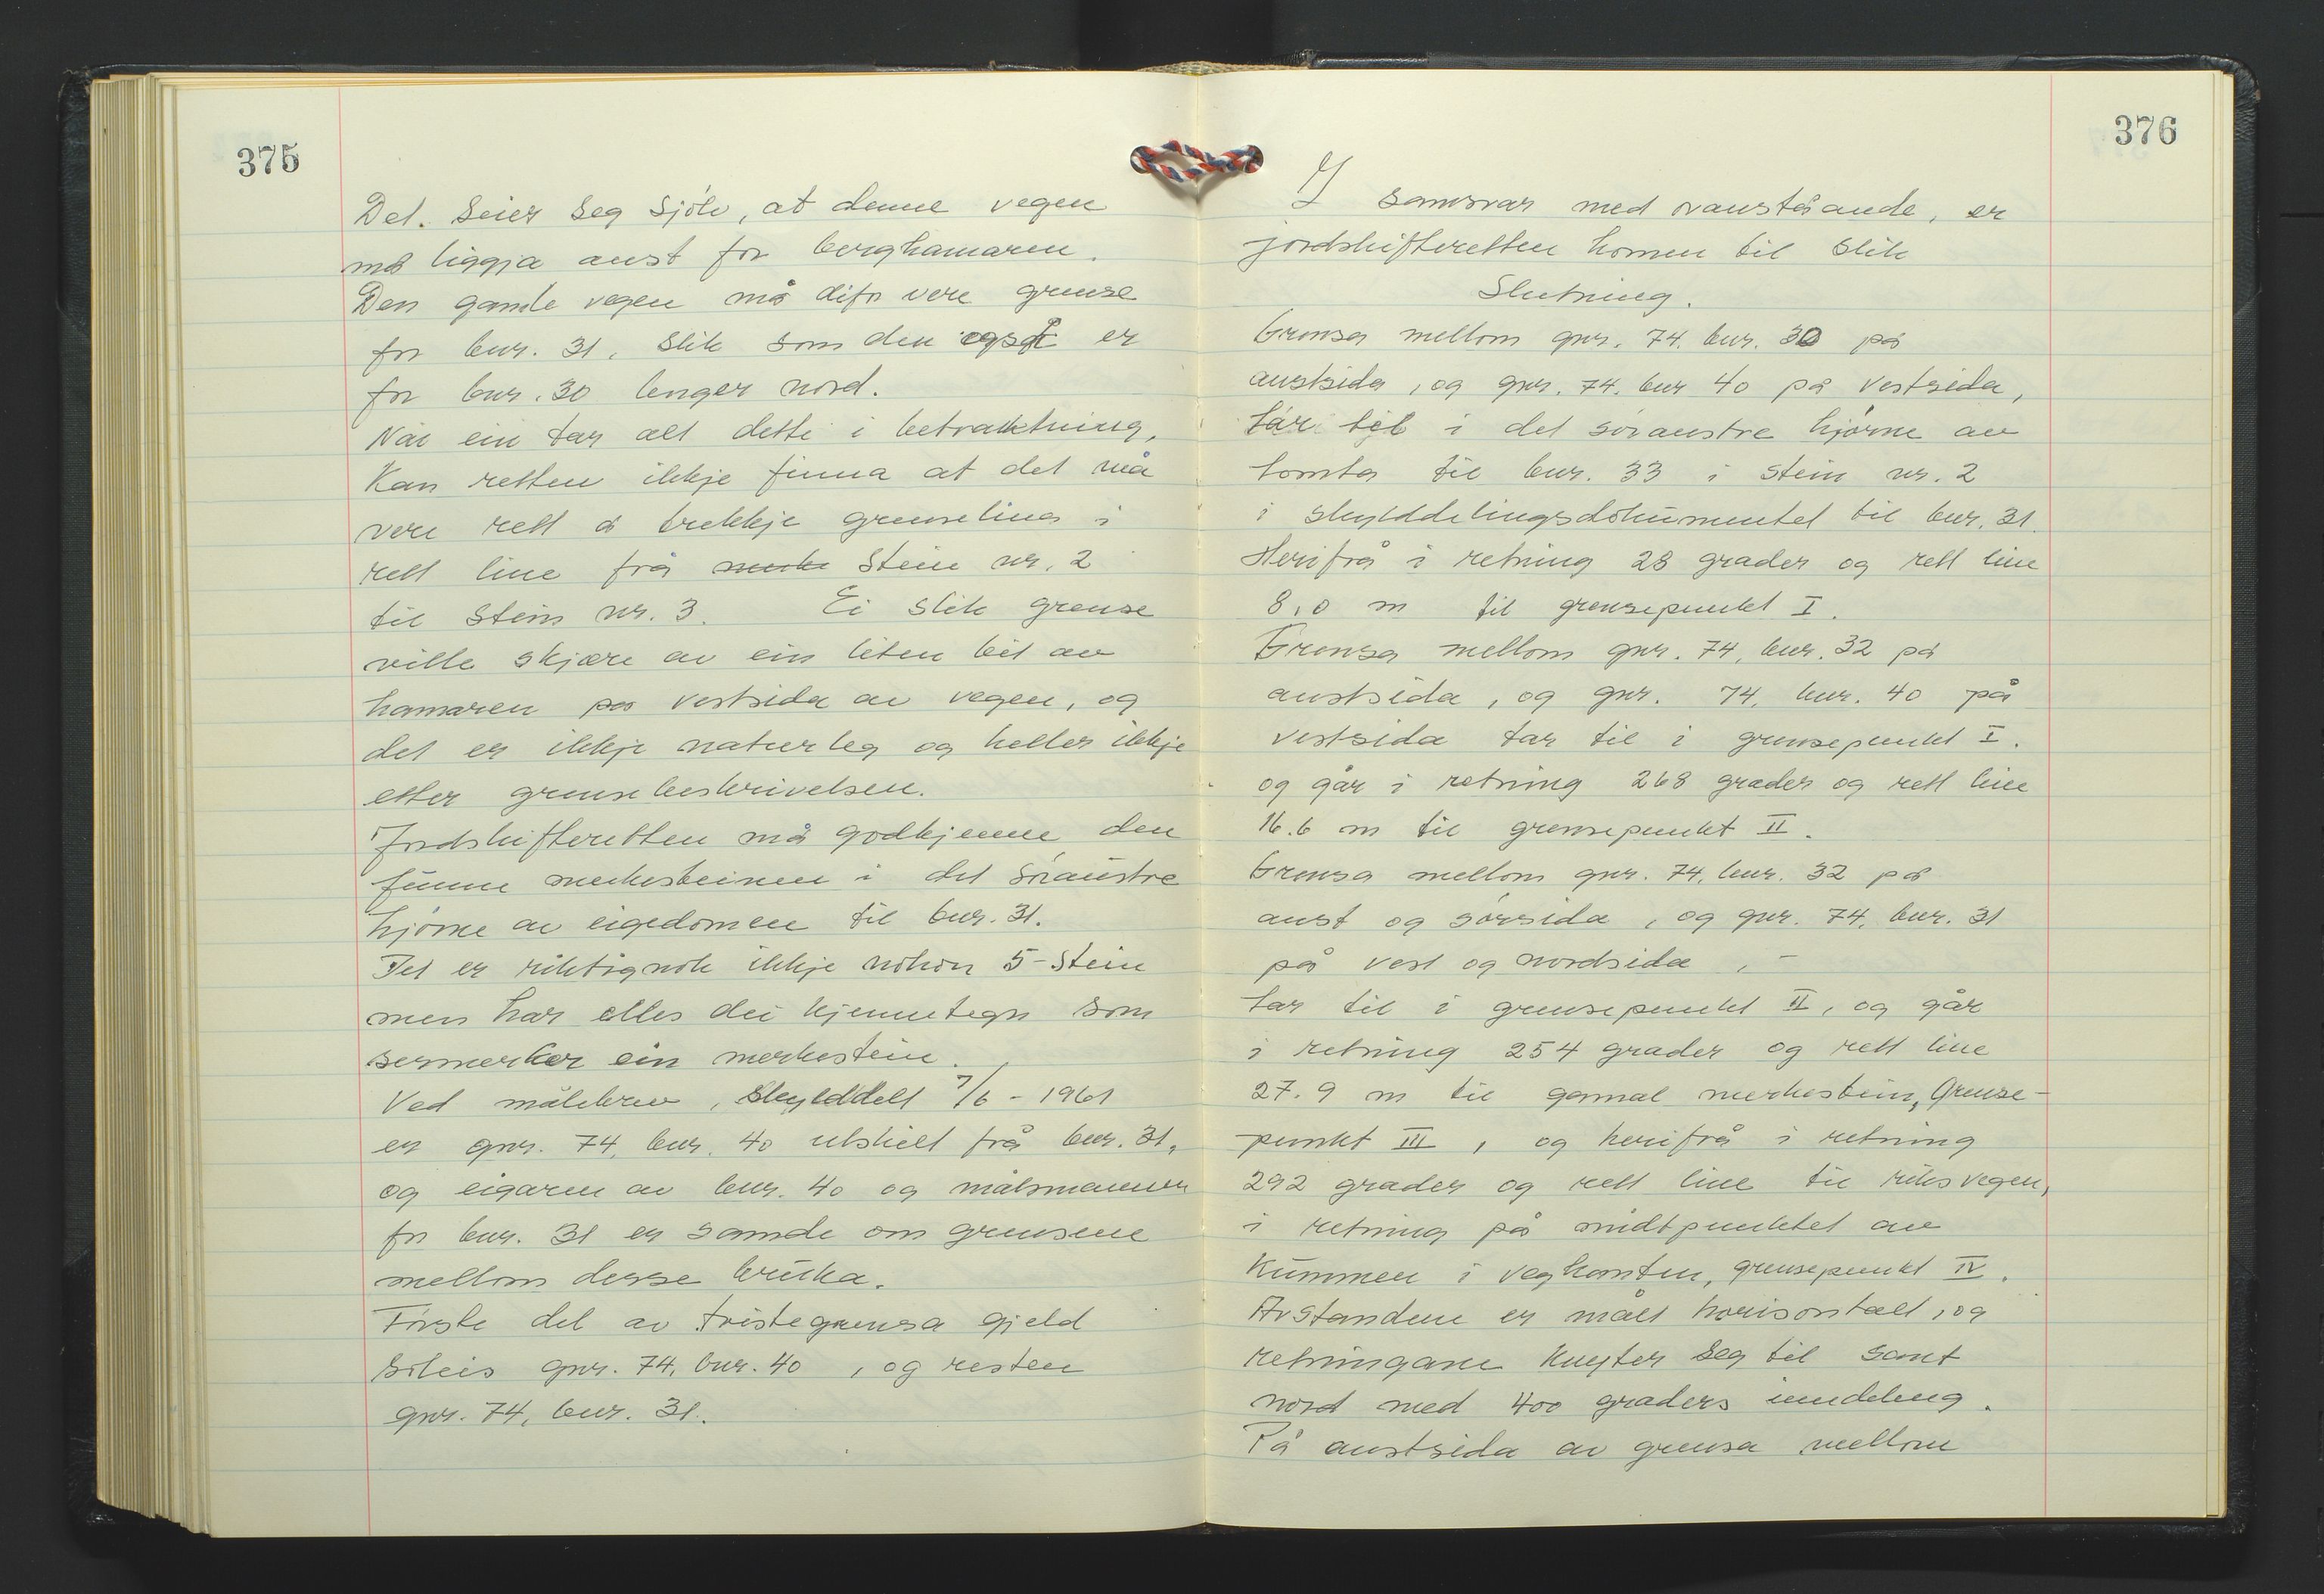 375
Det. seier seg sjölv, at denne vegen
må liggja aust for berghamaren.
Den gamle vegen må difor vere grense
for bnr. 31, slik som den også er
for bnr. 30 lenger nord.
Når ein tar alt dette i betraktning,
kan retten ikkje finna at det må
vere rett å trekkje grenselina i
rett line frå merke stein nr. 2
til stein nr. 3. Ei slik grense
ville skjære av ein liten bit av
hamaren på vestsida av vegen, og
det er ikkje naturleg og heller ikkje
etter grensebeskrivelsen.
Jordskifteretten må godkjenne den
funne merkesteinen i det söraustre
hjörne av eigedomen til bnr. 31.
Det er riktignok ikkje nokon 5-stein
men har elles dei kjennetegn som
sermerker ein merkestein.
Ved målebrev, skylddelt 7/6 - 1961
er gnr. 74, bnr. 40 utskilt frå bnr. 31,
og eigaren av bnr. 40 og målsmannen
for bnr. 31 er samde om grensene
mellom desse bruka.
Förste del av tvistegrensa gjeld
såleis gnr. 74, bnr. 40, og resten
gnr. 74, bnr. 31.
376
I samsvar med ovanståande, er
jordskifteretten komen til slik
Slutning.
Grensa mellom gnr. 74. bnr. 30 på
austsida, og gnr. 74. bnr 40 på vestsida,
tar til i det söraustre hjörne av
tomta til bnr. 33 i stein nr. 2
i skylddelingsdokumentet til bnr. 31.
Herifrå i retning 28 grader og rett line
8,0 m til grensepunkt I.
Grensa mellom gnr. 74, bnr. 32 på
austsida, og gnr. 74, bnr. 40 på
vestsida tar til i grensepunkt I.
og går i retning 268 grader og rett line
16.6 m til grensepunkt II.
Grensa mellom gnr. 74, bnr. 32 på
aust og sörsida, og gnr. 74, bnr. 31
på vest og nordsida, -
tar til i grensepunkt II, og går
i retning 254 grader og rett line
27.9 m til gamal merkestein, grense-
punkt III, og herifrå i retning
292 grader og rett line til riksvegen,
i retning på midtpunktet av
kummen i vegkanten, grensepunkt IV.
Avstandene er målt horisontalt, og
retningane knyter seg til sant
nord med 400 graders inndeling.
På austsida av grensa mellom